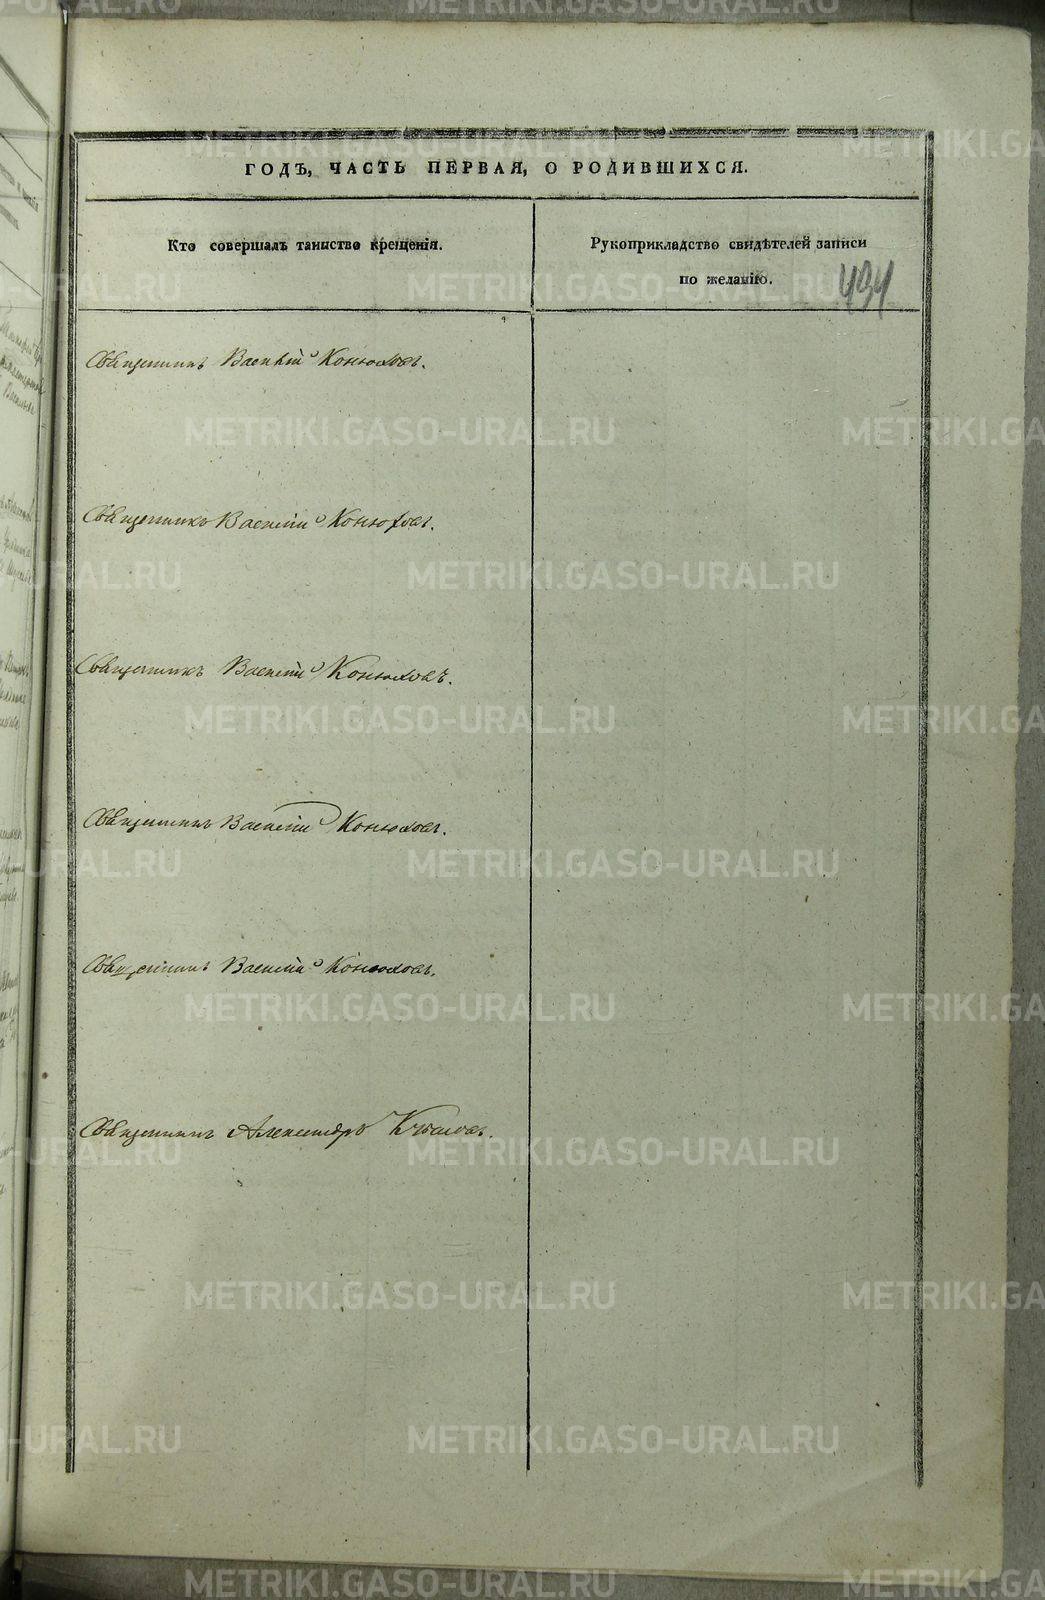 ГОДЪ, ЧАСТЬ ПЕРВАЯ, О РОДИВШИХСЯ.
Кто совершалъ таинство крещенія.
Рукоприкладство свидѣтелей записи
по желанію.
434
Священникъ Василій Конюховъ.
Священникъ Василій Конюховъ.
Священникъ Василій Конюховъ.
Священникъ Василій Конюховъ.
Священникъ Василій Конюховъ.
Священникъ Александръ
METRIKI.GASO-URAL.RU